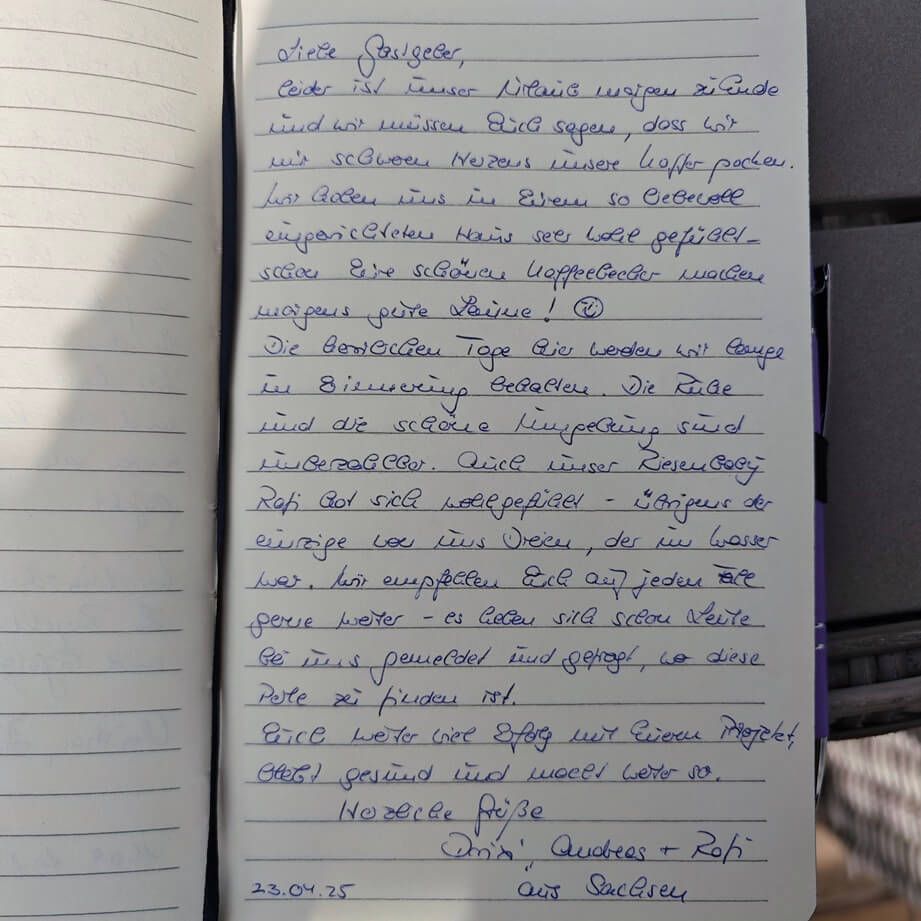 Liebe Gastgeber,
leider ist unser Urlaub morgen zu Ende
und wir müssen Euch sagen, dass wir
mit schweren Herzens unsere Koffer packen.
Wir haben uns in Eurem so liebevoll
eingerichteten Haus sehr wohl gefühlt -
schon Eure schönen Kaffeebecher machen
morgens gute Laune!
Die herrlichen Tage hier werden wir lange
in Erinnerung behalten. Die Ruhe
und die schöne Umgebung sind
unbezahlbar. Auch unser Riesenbaby
Rafi hat sich wohlgefühlt - übrigens der
einzige von uns Dreien, der im Wasser
war. Wir empfehlen Euch auf jeden Fall
gerne weiter - es haben sich schon Leute
bei uns gemeldet und gefragt, wo diese
Perle zu finden ist.
Euch weiter viel Erfolg mit Eurem Projekt,
bleibt gesund und macht weiter so.
Herzliche Grüße
Andreas + Rafi
23.04.25 aus Sachsen